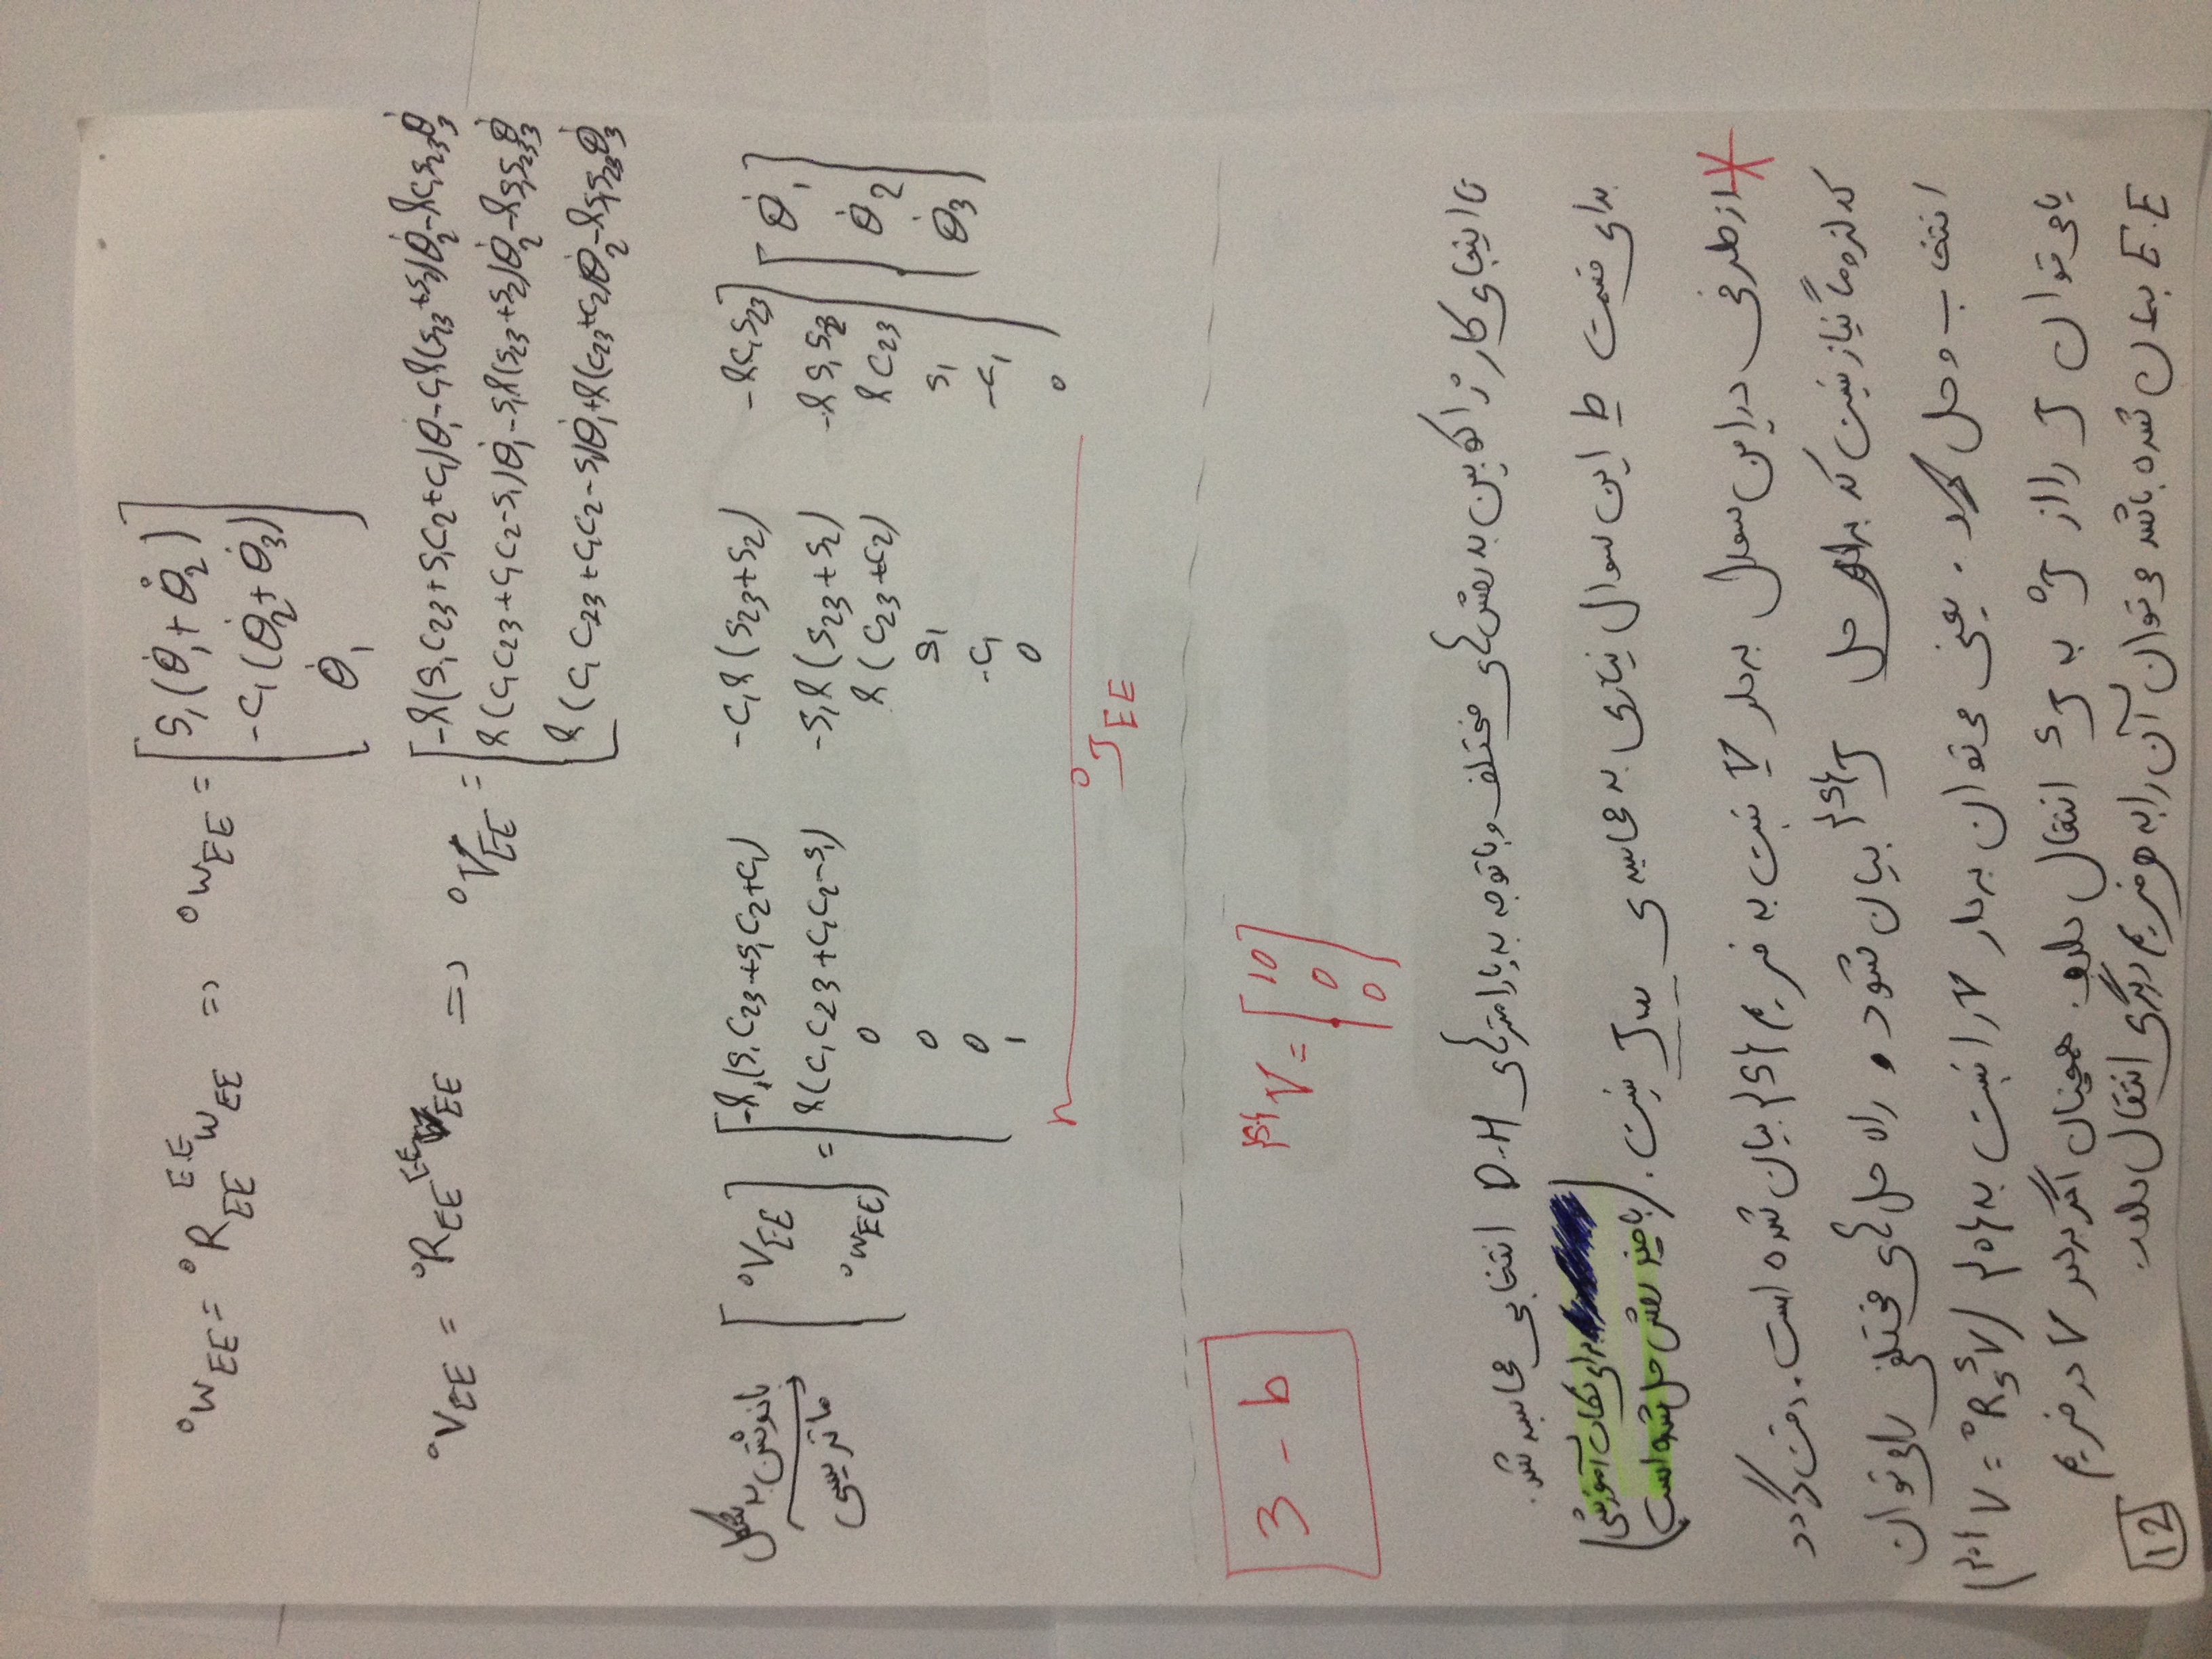 ⁰W_EE = ⁰R_EE ᴱ·ᴱW_EE => ⁰W_EE = [ S₁(θ̇₁+θ̇₂) ; -C₁(θ̇₂+θ̇₃) ; θ̇₁ ]
⁰V_EE = ⁰R_EE ᴱ·ᴱV_EE => ⁰V_EE = [ -l(S₁C₂₃+S₁C₂+C₁)θ̇₁-C₁l(S₂₃+S₂)θ̇₂-lC₁S₂₃θ̇₃
l(C₁C₂₃+C₁C₂-S₁)θ̇₁-S₁l(S₂₃+S₂)θ̇₂-lS₁S₂₃θ̇₃
l(C₁C₂₃+C₁C₂-S₁)θ̇₁+l(C₂₃+C₂)θ̇₂-lS₁S₂₃θ̇₃ ]
بانوشتن به شکل
ماتریسی
[ ⁰V_EE ; ⁰W_EE ] = [ -l(S₁C₂₃+S₁C₂+C₁) -C₁l(S₂₃+S₂) -lC₁S₂₃
l(C₁C₂₃+C₁C₂-S₁) -S₁l(S₂₃+S₂) -lS₁S₂₃
0 l(C₂₃+C₂) lC₂₃
0 S₁ S₁
0 -C₁ -C₁
1 0 0 ] [ θ̇₁ ; θ̇₂ ; θ̇₃ ]
⁰J_EE
3-b
{S}V = [ 10 ; 0 ; 0 ]
تا اینجای کار ژاکوبین به روش‌های مختلف و با توجه به پارامترهای D-H انتخابی محاسبه شد.
برای قسمت b این سوال نیازی به محاسبه‌ی Jw نیست.
(برای نکات آموزشی
با چند روش حل شده است)
* از طرفی در این سوال بردار V نسبت به فریم {S} بیان شده است. دقت گردد
که لزوماً نیاز نیست که برای حل {S}J بیان شود و راه حل‌های مختلفی را می‌توان
انتخاب و حل کرد. یعنی می‌توان بردار V را نسبت به {0} ({0}V = ⁰R_S ˢV)
یا می‌توان J را از ⁰J به ˢJ انتقال داد. همچنان اگر بردار V در فریم
E.E بیان شده باشد می‌توان آن را به هر فریم دیگری انتقال داد.
12